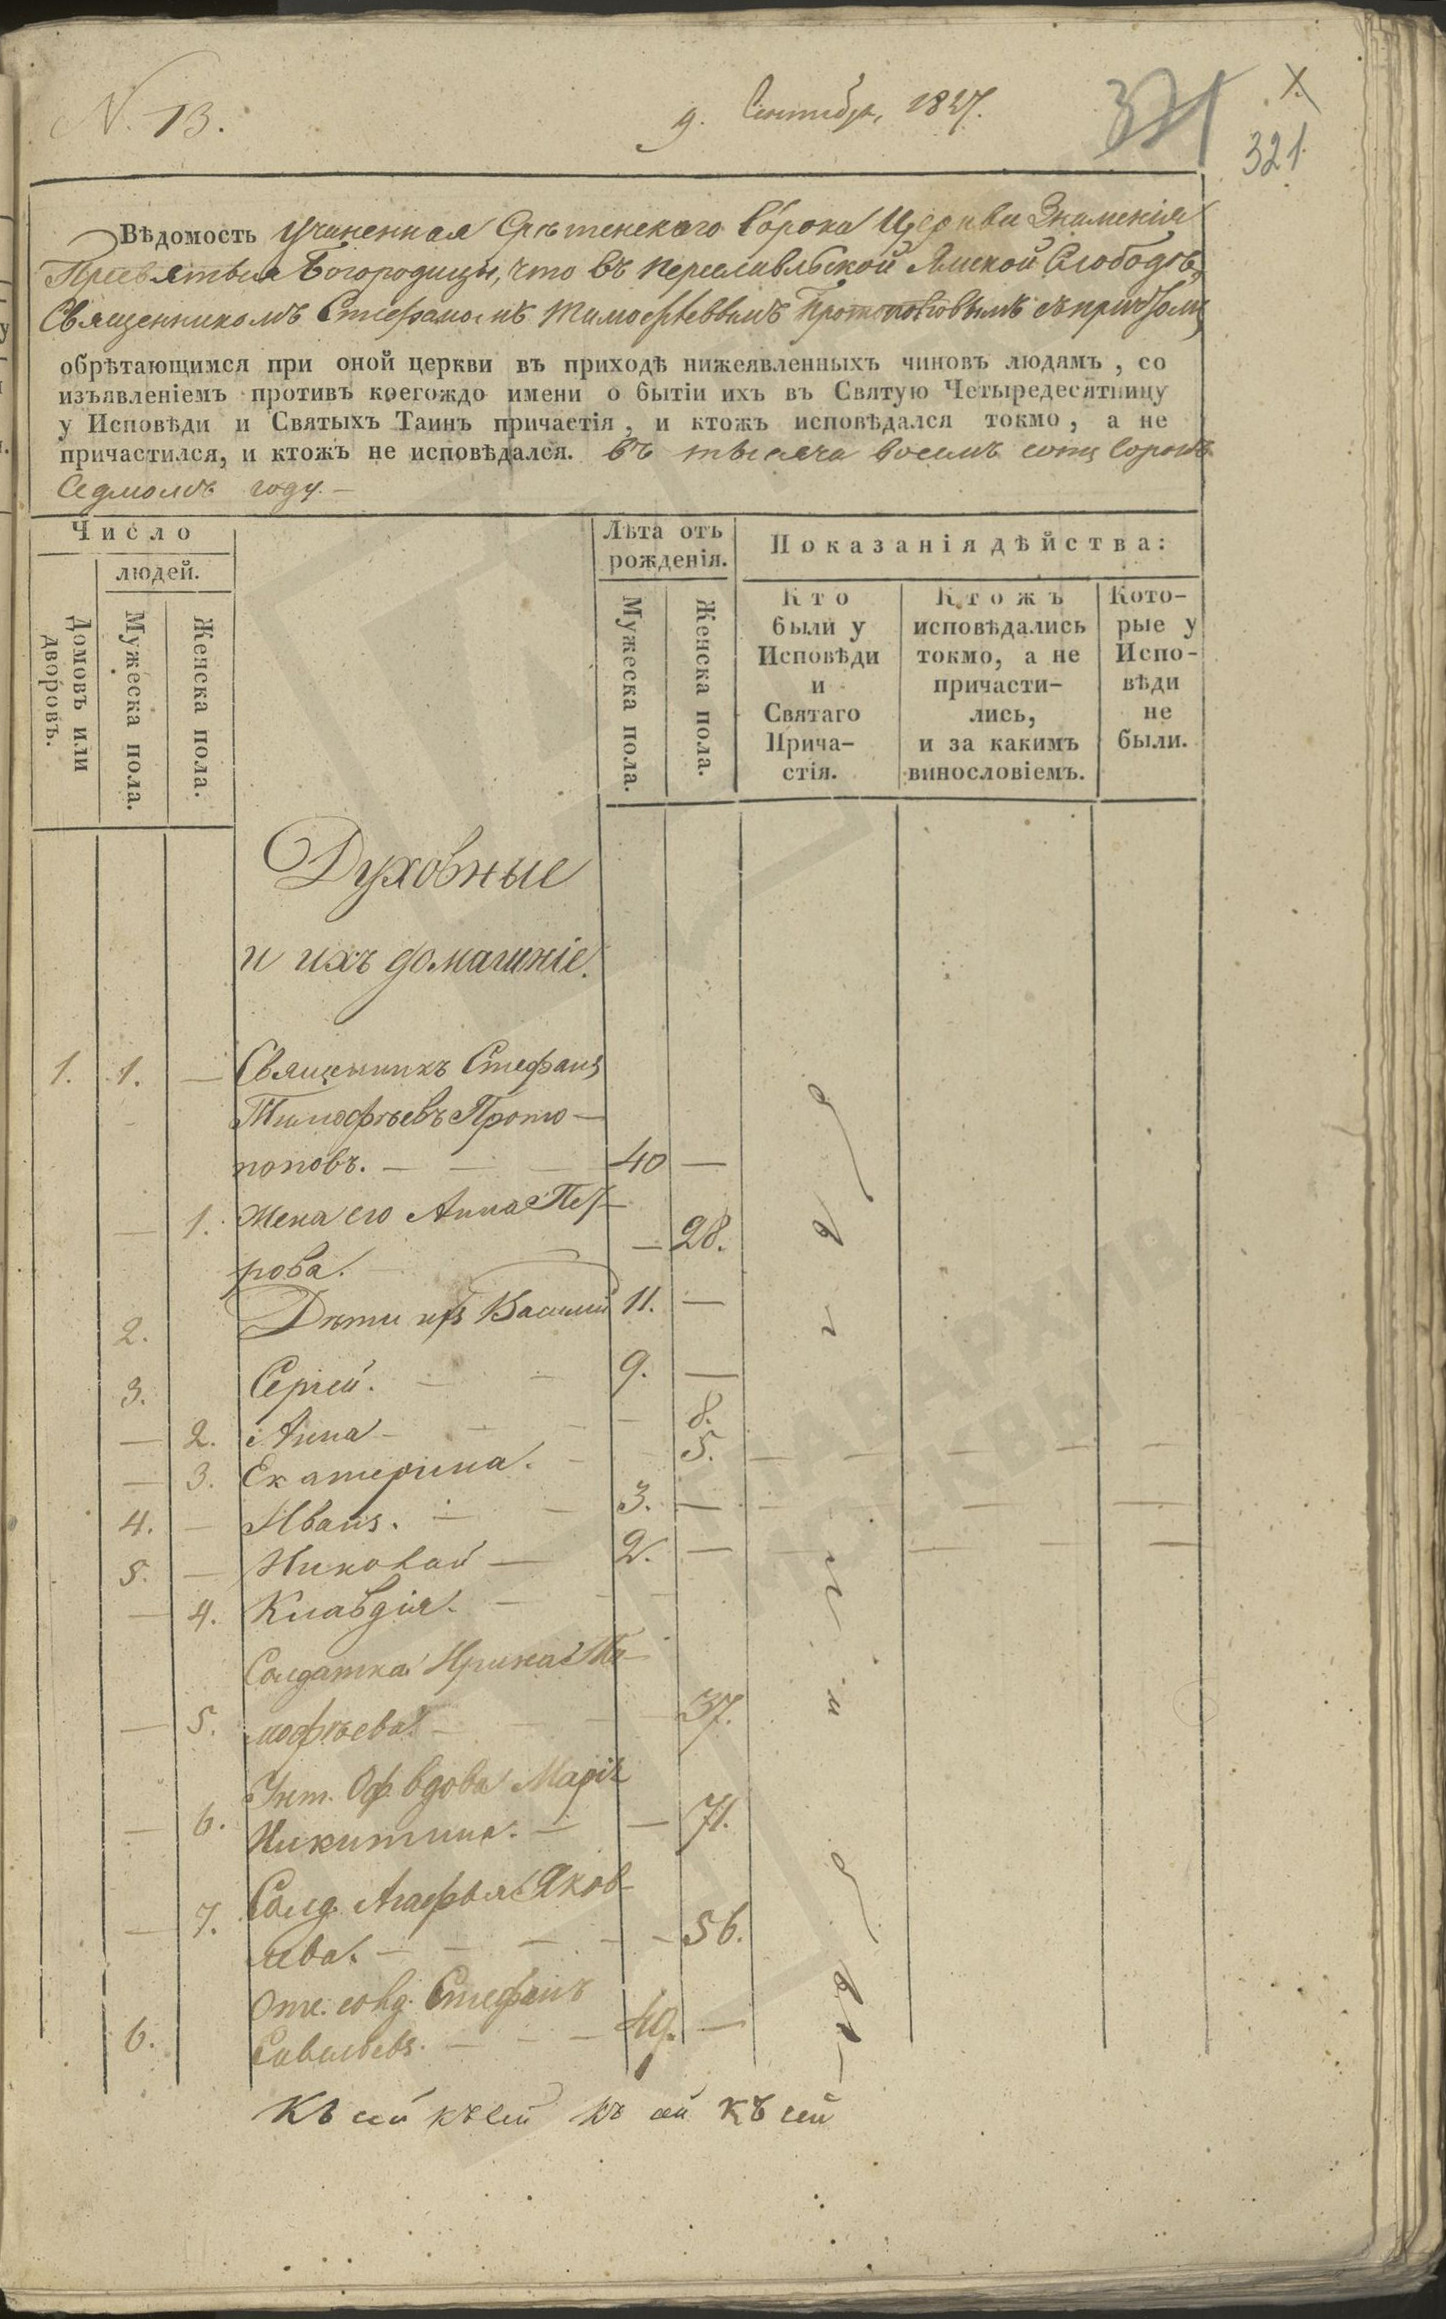 N. 13.
9. Сентября, 1847.
321
X.
321
Вѣдомость учиненная Срѣтенскаго Сорока Церкви Знаменія
Пресвятыя Богородицы, что въ Переславльской Ямской Слободѣ,
Священникомъ Стефаномъ Тимофѣевымъ Протопоповымъ съ причтомъ
обрѣтающимся при оной церкви въ приходѣ нижеявленныхъ чиновъ людямъ, со
изъявленіемъ противъ коегождо имени о бытіи ихъ въ Святую Четыредесятницу
у Исповѣди и Святыхъ Таинъ причастія, и ктожъ исповѣдался токмо, а не
причастился, и ктожъ не исповѣдался. въ тысяча восемь сотъ сорокъ
Седмомъ году.—
Число
людей.
Домовъ или дворовъ.
Мужеска пола.
Женска пола.
Лѣта отъ
рожденія.
Мужеска пола.
Женска пола.
Показанія дѣйства:
Кто
были у
Исповѣди
и
Святаго
Прича-
стія.
Ктожъ
исповѣдались
токмо, а не
причасти-
лись,
и за какимъ
винословіемъ.
Кото-
рые у
Испо-
вѣди
не
были.
Духовные
и ихъ домашніе.
1. 1. — Священникъ Стефанъ
Тимофѣевъ Прото-
поповъ. — 40 —
— 1. Жена его Анна Пет-
рова. — 28.
2. Дѣти ихъ Василій 11. —
3. Сергей. — 9. —
— 2. Анна — 8.
— 3. Екатерина. — 5. — — — — —
4. — Иванъ. — 3. — — — —
5. — Николай — 2. — — — — —
— 4. Клавдія. —
Солдатка Ирина Ти-
— 5. мофѣева. — 37.
Унт. Оф. вдова Марія
— 6. Никитина. — — 71.
— 7. Солд. Агафья Яков-
лева. — 56.
Отс. солд. Стефанъ
6. Савельевъ. — 49. —
Къ сей къ сей къ сей къ сей